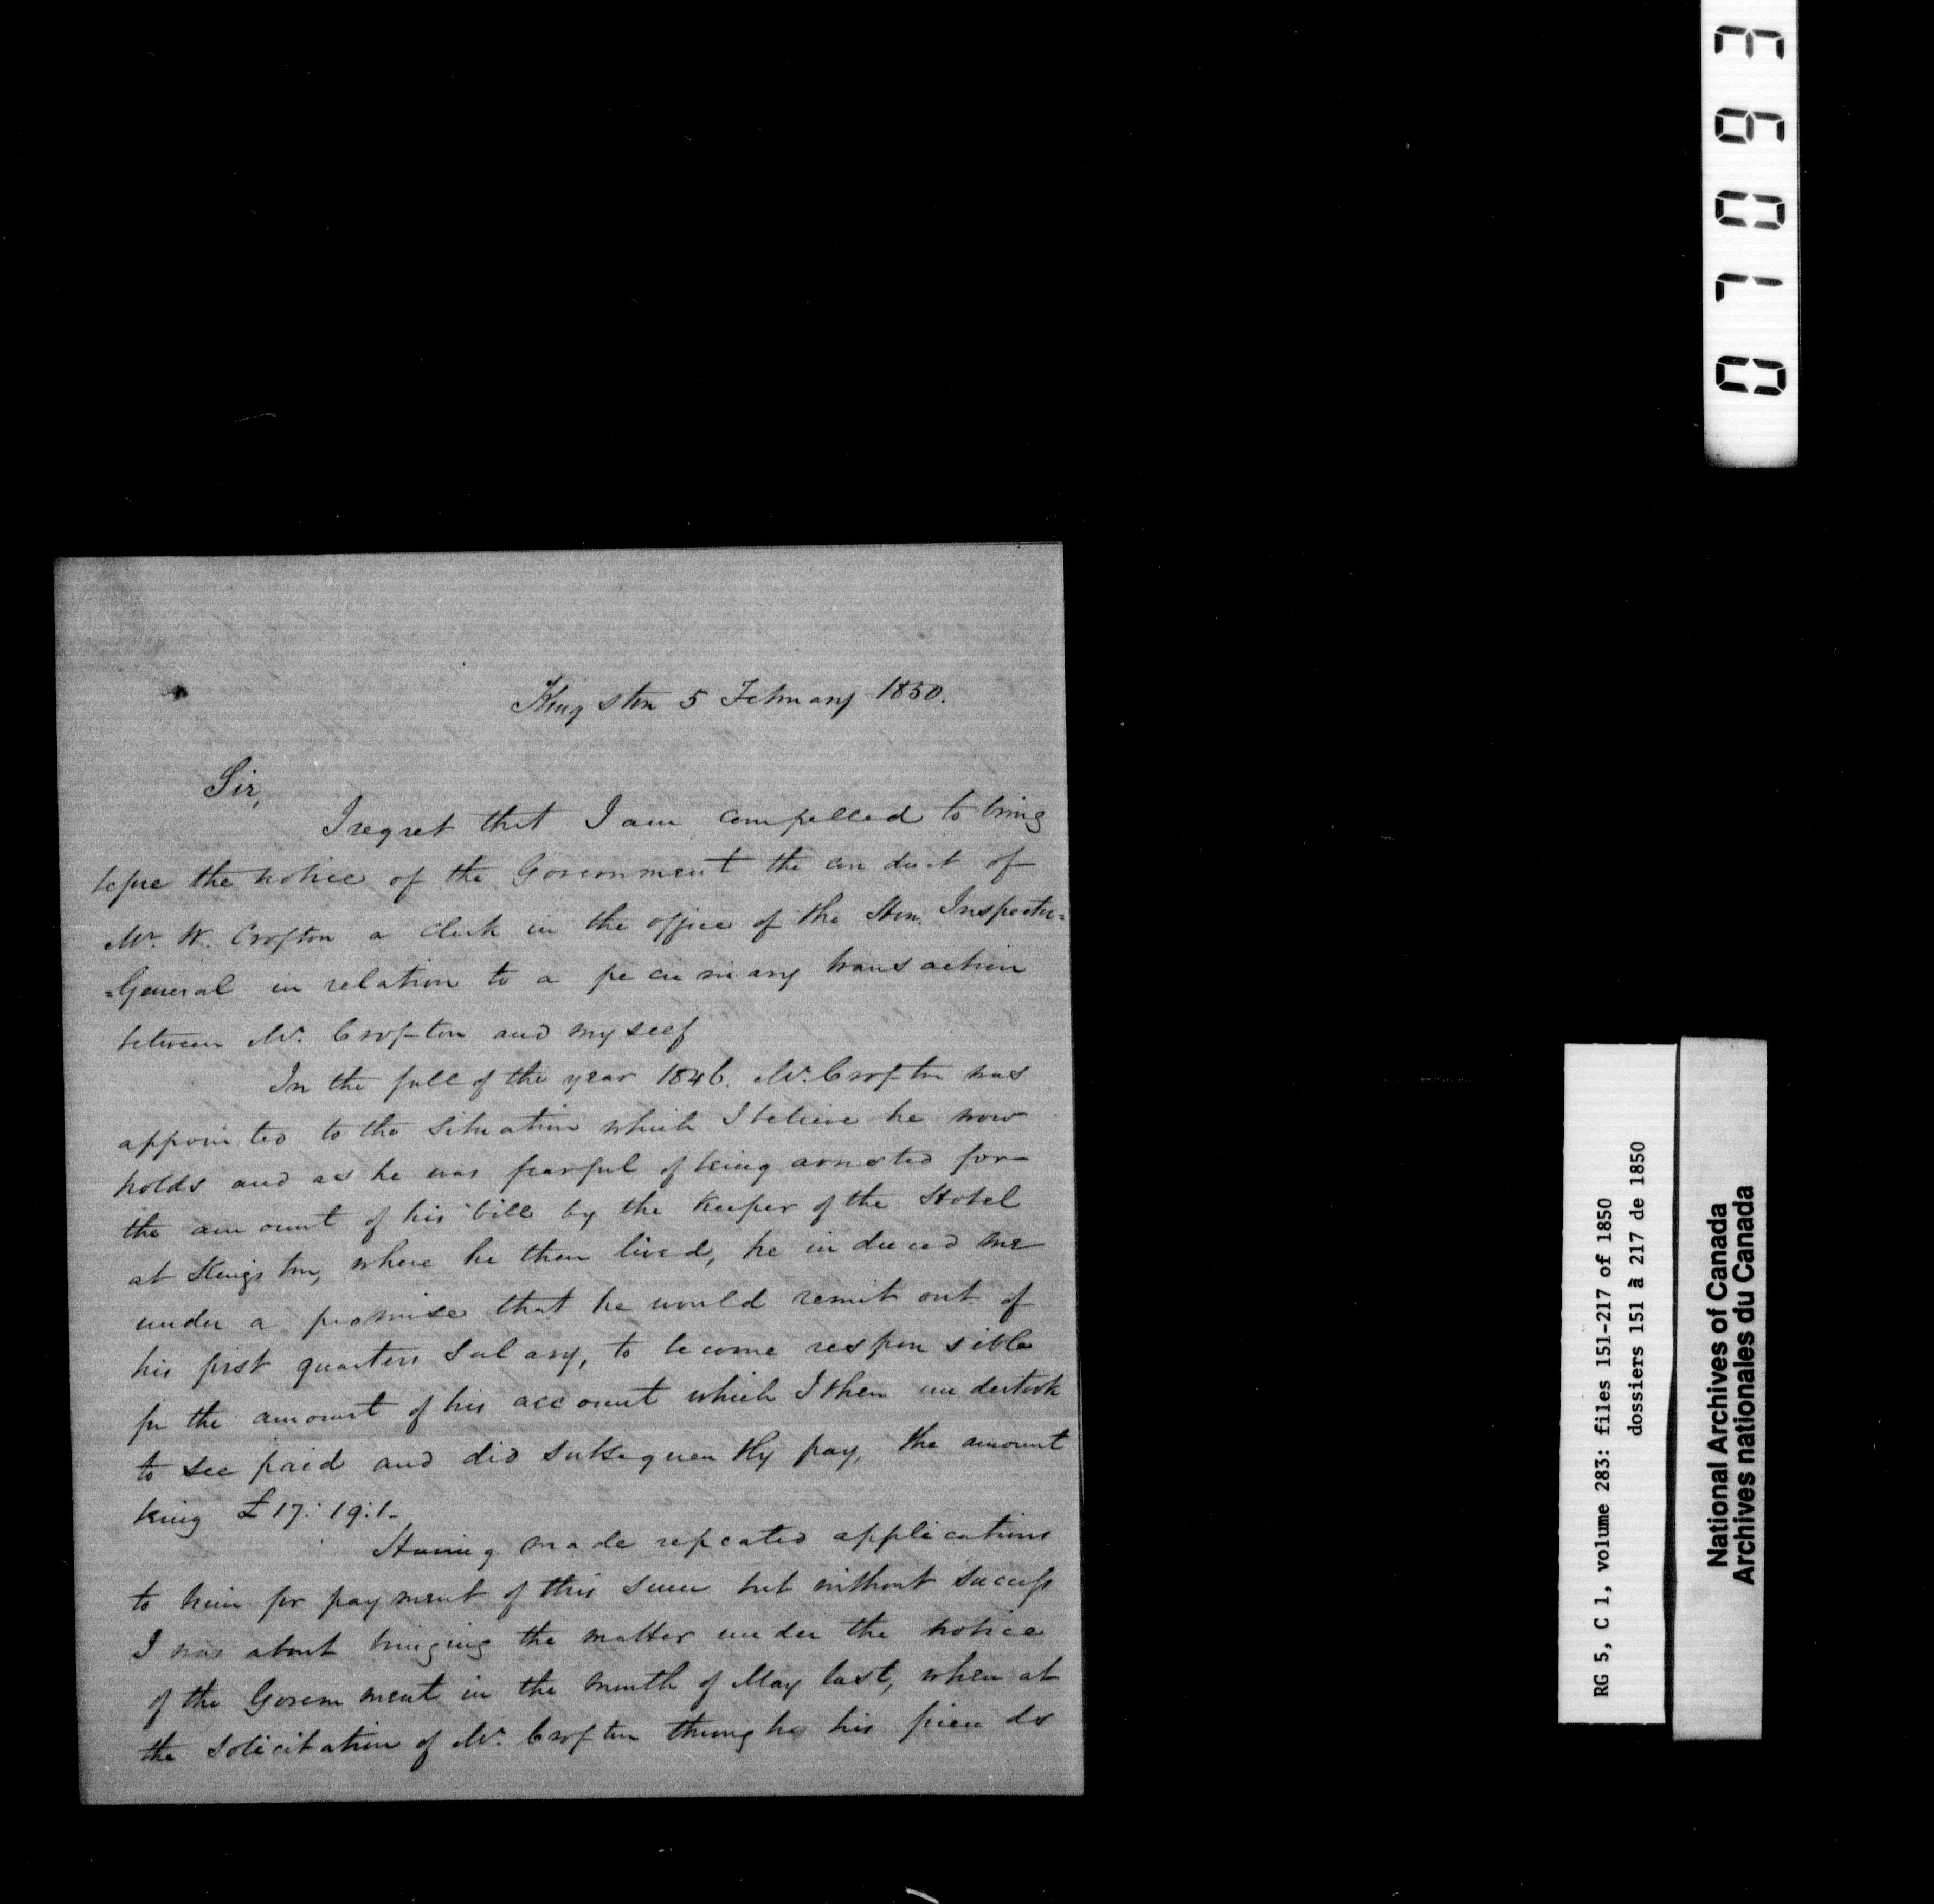 Kingston 5 February 1850.
Sir,
I regret that I am compelled to bring
before the notice of the Government the conduct of
Mr. W. Crofton a clerk in the office of the Hon. Inspector=
=General in relation to a pecuniary transaction
between Mr. Crofton and myself
In the fall of the year 1846. Mr. Crofton was
appointed to the situation which I believe he now
holds and as he was fearful of being arrested for
the amount of his bill by the Keeper of the Hotel
at Kingston, where he then lived, he induced me
under a promise that he would remit out of
his first quarters salary, to become responsible
for the amount of his account which I then undertook
to see paid and did subsequently pay, the amount
being £17:19:1-
Having made repeated applications
to him for payment of this sum but without success
I was about bringing the matter under the notice
of the Government in the month of May last, when at
the solicitation of Mr. Crofton through his friends
01093
RG 5, C 1, volume 283: files 151-217 of 1850
dossiers 151 à 217 de 1850
National Archives of Canada
Archives nationales du Canada